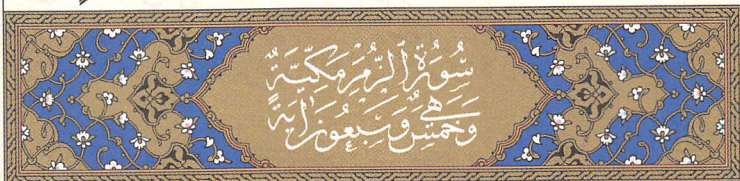 سُورَةُ ٱلزُّمَرِ مَكِّيَّةٌ
وَهِىَ خَمْسٌ وَسَبْعُونَ اٰيَةً